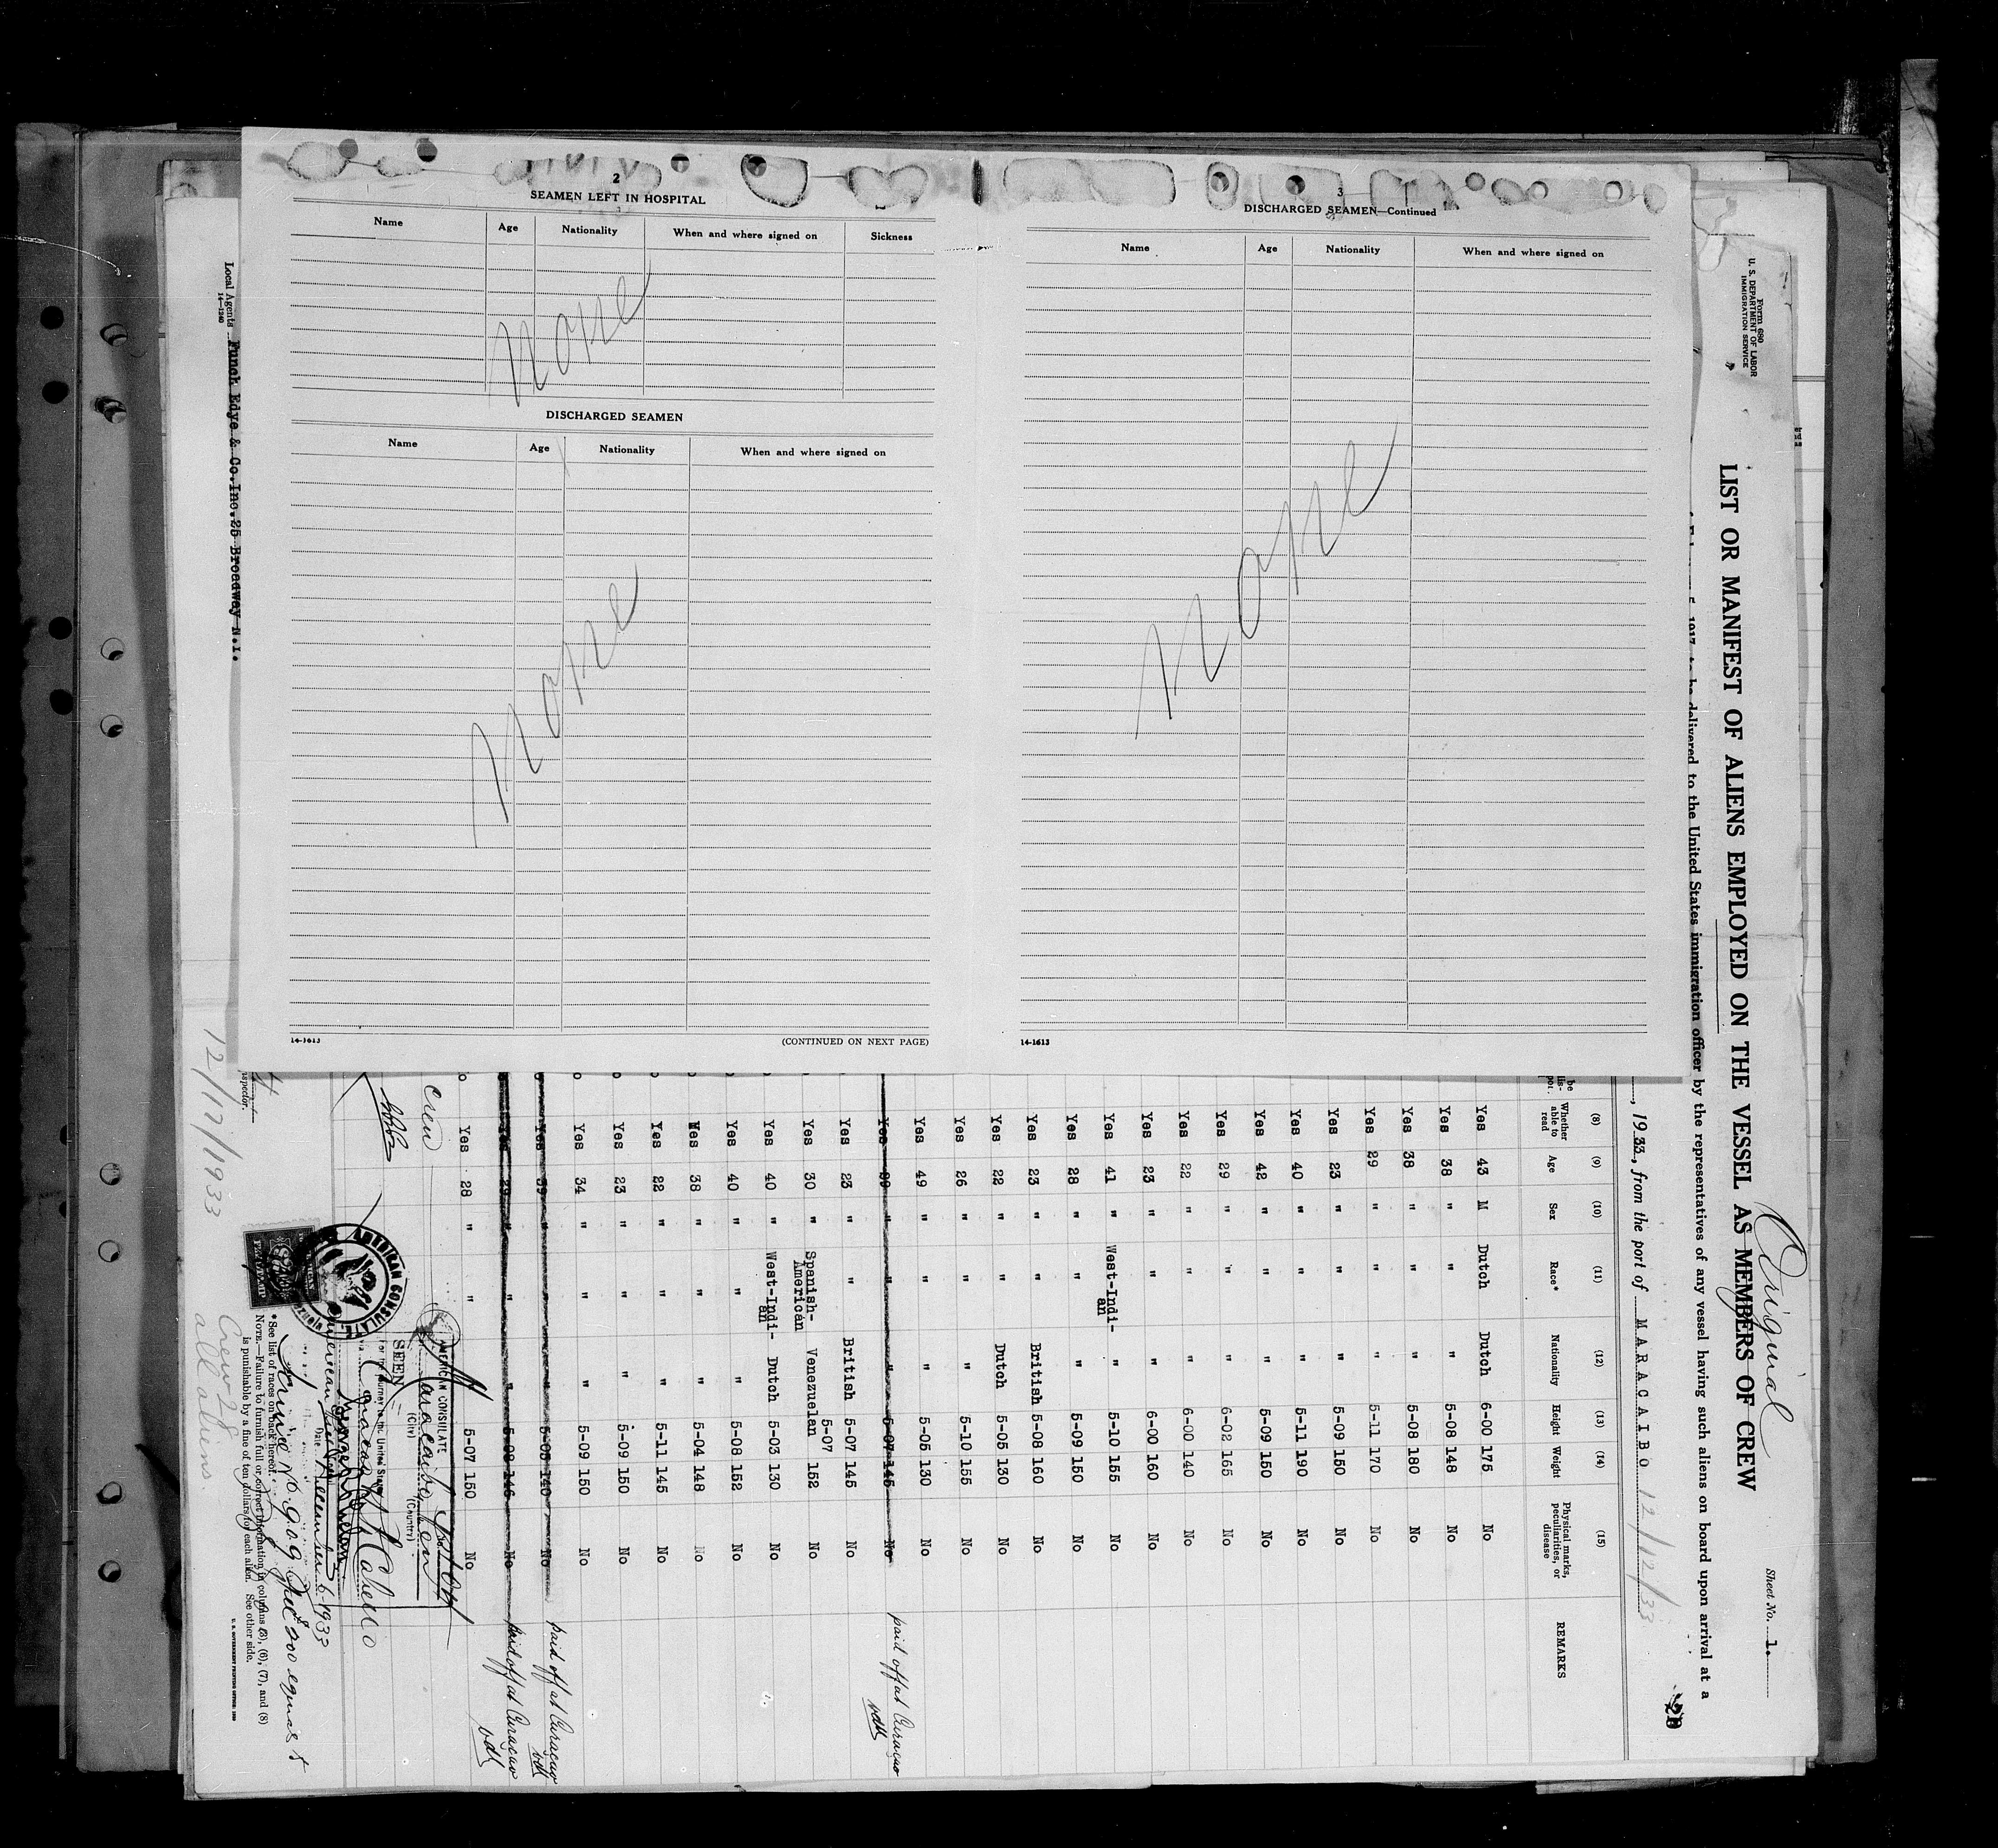 2
SEAMEN LEFT IN HOSPITAL
Name Age Nationality When and where signed on Sickness
None
DISCHARGED SEAMEN
Name Age Nationality When and where signed on
None
14-1613 (CONTINUED ON NEXT PAGE)
3
DISCHARGED SEAMEN—Continued
Name Age Nationality When and where signed on
None
14-1613
Original
Sheet No. 1.
Form 680
U. S. DEPARTMENT OF LABOR
IMMIGRATION SERVICE
LIST OR MANIFEST OF ALIENS EMPLOYED ON THE VESSEL AS MEMBERS OF CREW
5, 1917, to be delivered to the United States immigration officer by the representatives of any vessel having such aliens on board upon arrival at a
, 1933, from the port of MARACAIBO 12/12/33
(8) (9) (10) (11) (12) (13) (14) (15)
Whether able to read Age Sex Race* Nationality Height Weight Physical marks, peculiarities, or disease REMARKS
Yes 43 M Dutch Dutch 6-00 175 No
Yes 38 " " " 5-08 148 No
Yes 38 " " " 5-08 180 No
Yes 29 " " " 5-11 170 No
Yes 23 " " " 5-09 150 No
Yes 40 " " " 5-11 190 No
Yes 42 " " " 5-09 150 No
Yes 29 " " " 6-02 165 No
Yes 22 " " " 6-00 140 No
Yes 23 " " " 6-00 160 No
Yes 41 " West-Indian " 5-10 155 No
Yes 28 " " " 5-09 150 No
Yes 23 " " British 5-08 160 No
Yes 22 " " Dutch 5-05 130 No
Yes 26 " " " 5-10 155 No
Yes 49 " " " 5-05 130 No
Yes 39 " " " 5-07 145 No paid off at Curaçao
Yes 23 " " British 5-07 145 No
Yes 30 " Spanish-American Venezuelan 5-07 152 No
Yes 40 " West-Indian Dutch 5-03 130 No
Yes 40 " " " 5-08 152 No
Yes 38 " " " 5-04 148 No
Yes 22 " " " 5-11 145 No
Yes 23 " " " 5-09 150 No
Yes 34 " " " 5-09 150 No
Yes 39 " " " 5-05 140 No paid off at Curaçao
Yes 29 " " " 5-08 146 No paid off at Curaçao
Yes 28 " " " 5-07 150 No
crew
AMERICAN CONSULATE
Maracaibo, Venez
(City) (Country)
SEEN
For the journey to the United States
Date December 6-1933
AMERICAN CONSULATE
Service No. 909
*See list of races on back hereof.
NOTE.—Failure to furnish full or correct information in columns (3), (6), (7), and (8)
is punishable by a fine of ten dollars for each alien. See other side.
U. S. GOVERNMENT PRINTING OFFICE
Crew 28
all aliens
12/17/1933
Inspector.
Local Agents Funch Edye & Co.Inc.25 Broadway N.Y.
14-1240